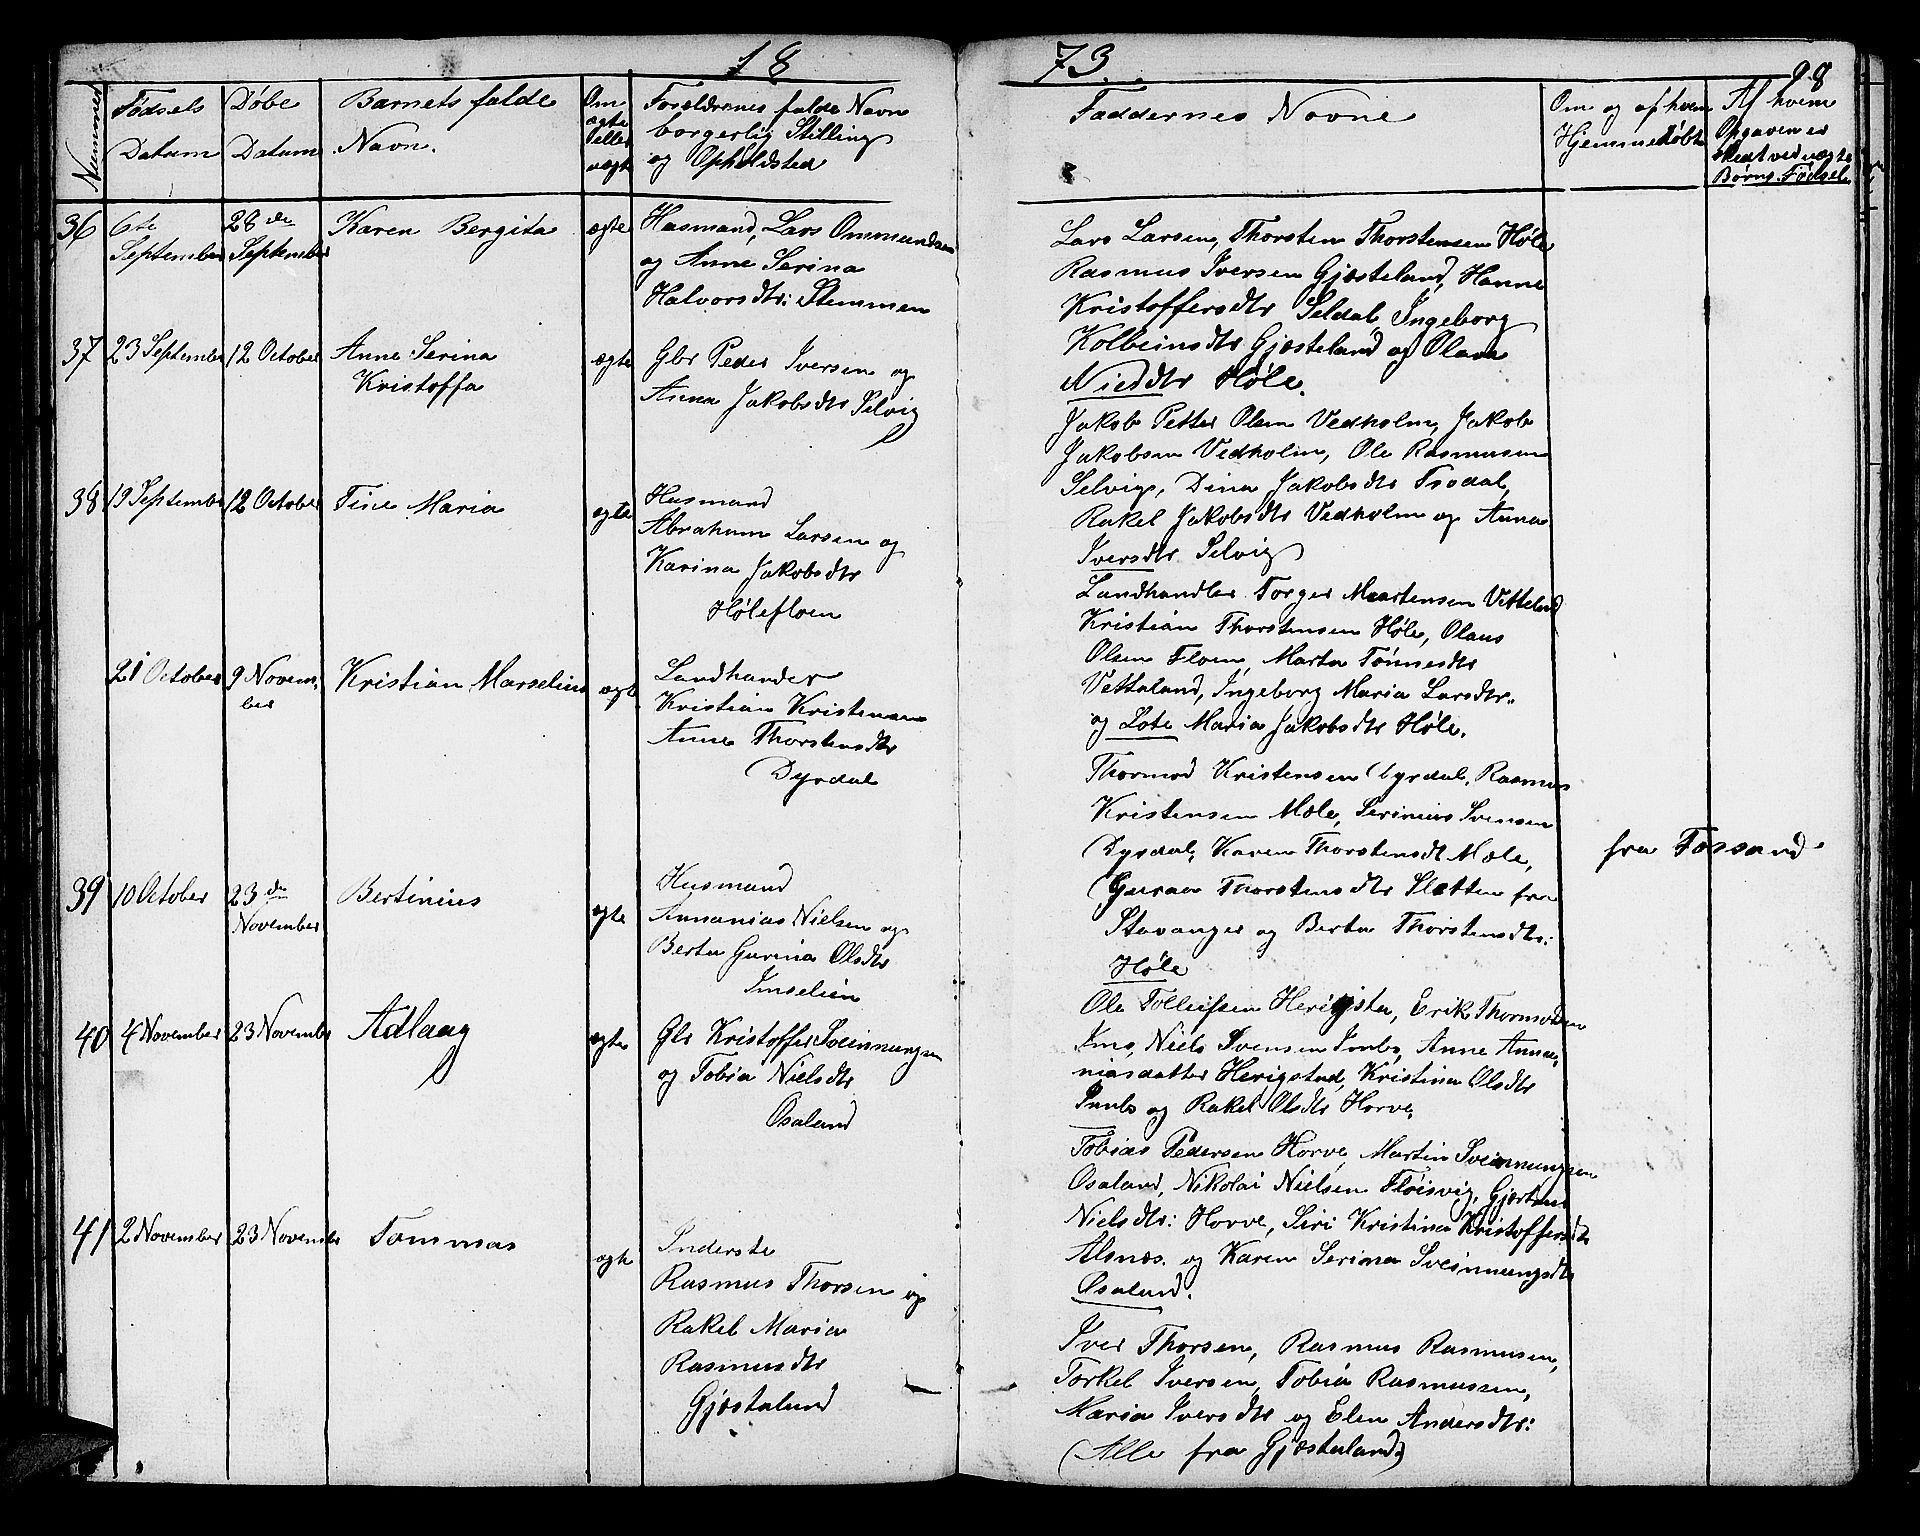 18
73.
98
Nummer
Fødsels Datum
Døbe Datum
Barnets fulde Navn.
Om ægte eller uægte
Forældrenes fulde Navn
borgerlig Stilling
og Opholdsted
Faddernes Navne
Om og af hvem
Hjemmedøbt
Af hvem
Opgaven er
skeet ved uægte
Børns Fødsel
36 6te September 28de September Karen Bergita ægte
Husmand, Lars Ommundsen
og Anne Serina
Halvorsdtr: Stemmen
Lars Larsen, Thorsten Thorstensen Høle
Rasmus Iversen Gjæsteland, Hanne
Kristoffersdtr Seldal Ingeborg
Kolbeinsdtr Gjæsteland og Olava
Nielsdtr Høle.
37 23 September 12 October Anne Serina
Kristoffa
ægte
Gbr Peder Iversen og
Anna Jakobsdtr Selvig
Jakob Petter Olsen Vedholm, Jakob
Jakobsen Vedholm, Ole Rasmusen
Selvig, Dina Jakobsdtr Frødal,
Rakel Jakobsdtr Vedholm og Anna
Iversdtr Selvig
38 19 September 12 October Tine Maria ægte
Husmand
Abraham Larsen og
Karina Jakobsdtr
Hølefloen
Landhandler Torger Maartensen Vetteland
Kristian Thorstensen Høle, Olaus
Olsen Floen, Marta Tønnesdtr
Vettaland, Ingeborg Maria Larsdtr.
og Lote Maria Jakobsdtr Høle.
21 October 9 Novem-
ber
Kristian Marselius ægte
Landhander
Kristian Kristensen
Anne Thorstensdtr
Dyrdal
Thormod Kristensen Dyrdal, Rasmus
Kristensen Mæle, Serinius Svensen
Dyrdal, Karen Thorstensdt Mæle,
Guraa Thorstensdtr Sletten fra
Stavanger og Berta Thorstensdtr:
Høle
fra Fossand
39 10 October 23de November Bertinius ægte
Husmand
Annanias Nielsen og
Berta Gurina Olsdtr
Imselien
Ole Tolleifsen Herigsta, Erik Thormodsen
Ims, Niels Svensen Imbs, Anne Anna-
niasdatter Herigstad, Kristina Olsdtr
Imbs og Rakel Olsdtr Horve.
40 4 November 23 November Adlaug ægte
Gbr Kristoffer Sveinnungsen
og Tobia Nielsdtr
Osaland
Tobias Pedersen Horve, Martin Sveinnungsen
Osaland, Nikolai Nielsen Fløisvig, Gjertine
Nielsdtr: Horve, Siri Kristina Kristoffersdtr
Alsnæs. og Karen Serina Sveinnungsdtr
Osaland.
41 2 November 23 November Tommas ægte
Inderste
Rasmus Thorsen og
Rakel Maria
Rasmusdtr
Gjæstaland
Iver Thorsen, Rasmus Rasmusen,
Torkel Iversen, Tobia Rasmussen,
Maria Iversdtr og Elen Andersdtr:
(Alle fra Gjæsteland)